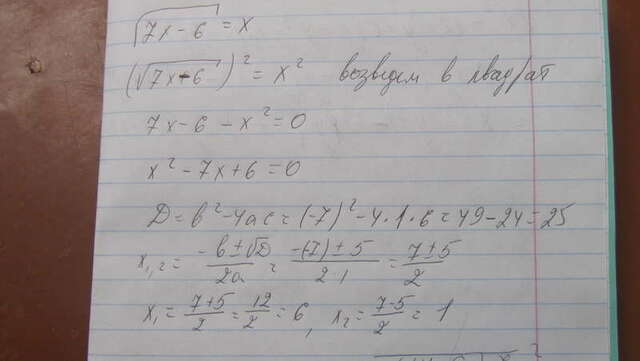 √7x-6 = x
(√7x-6)² = x² возведем в квадрат
7x-6-x²=0
x²-7x+6=0
D=b²-4ac=(-7)²-4·1·6=49-24=25
x₁,₂ = -b±√D/2a = -(-7)±5/2·1 = 7±5/2
x₁ = 7+5/2 = 12/2 = 6, x₂ = 7-5/2 = 1